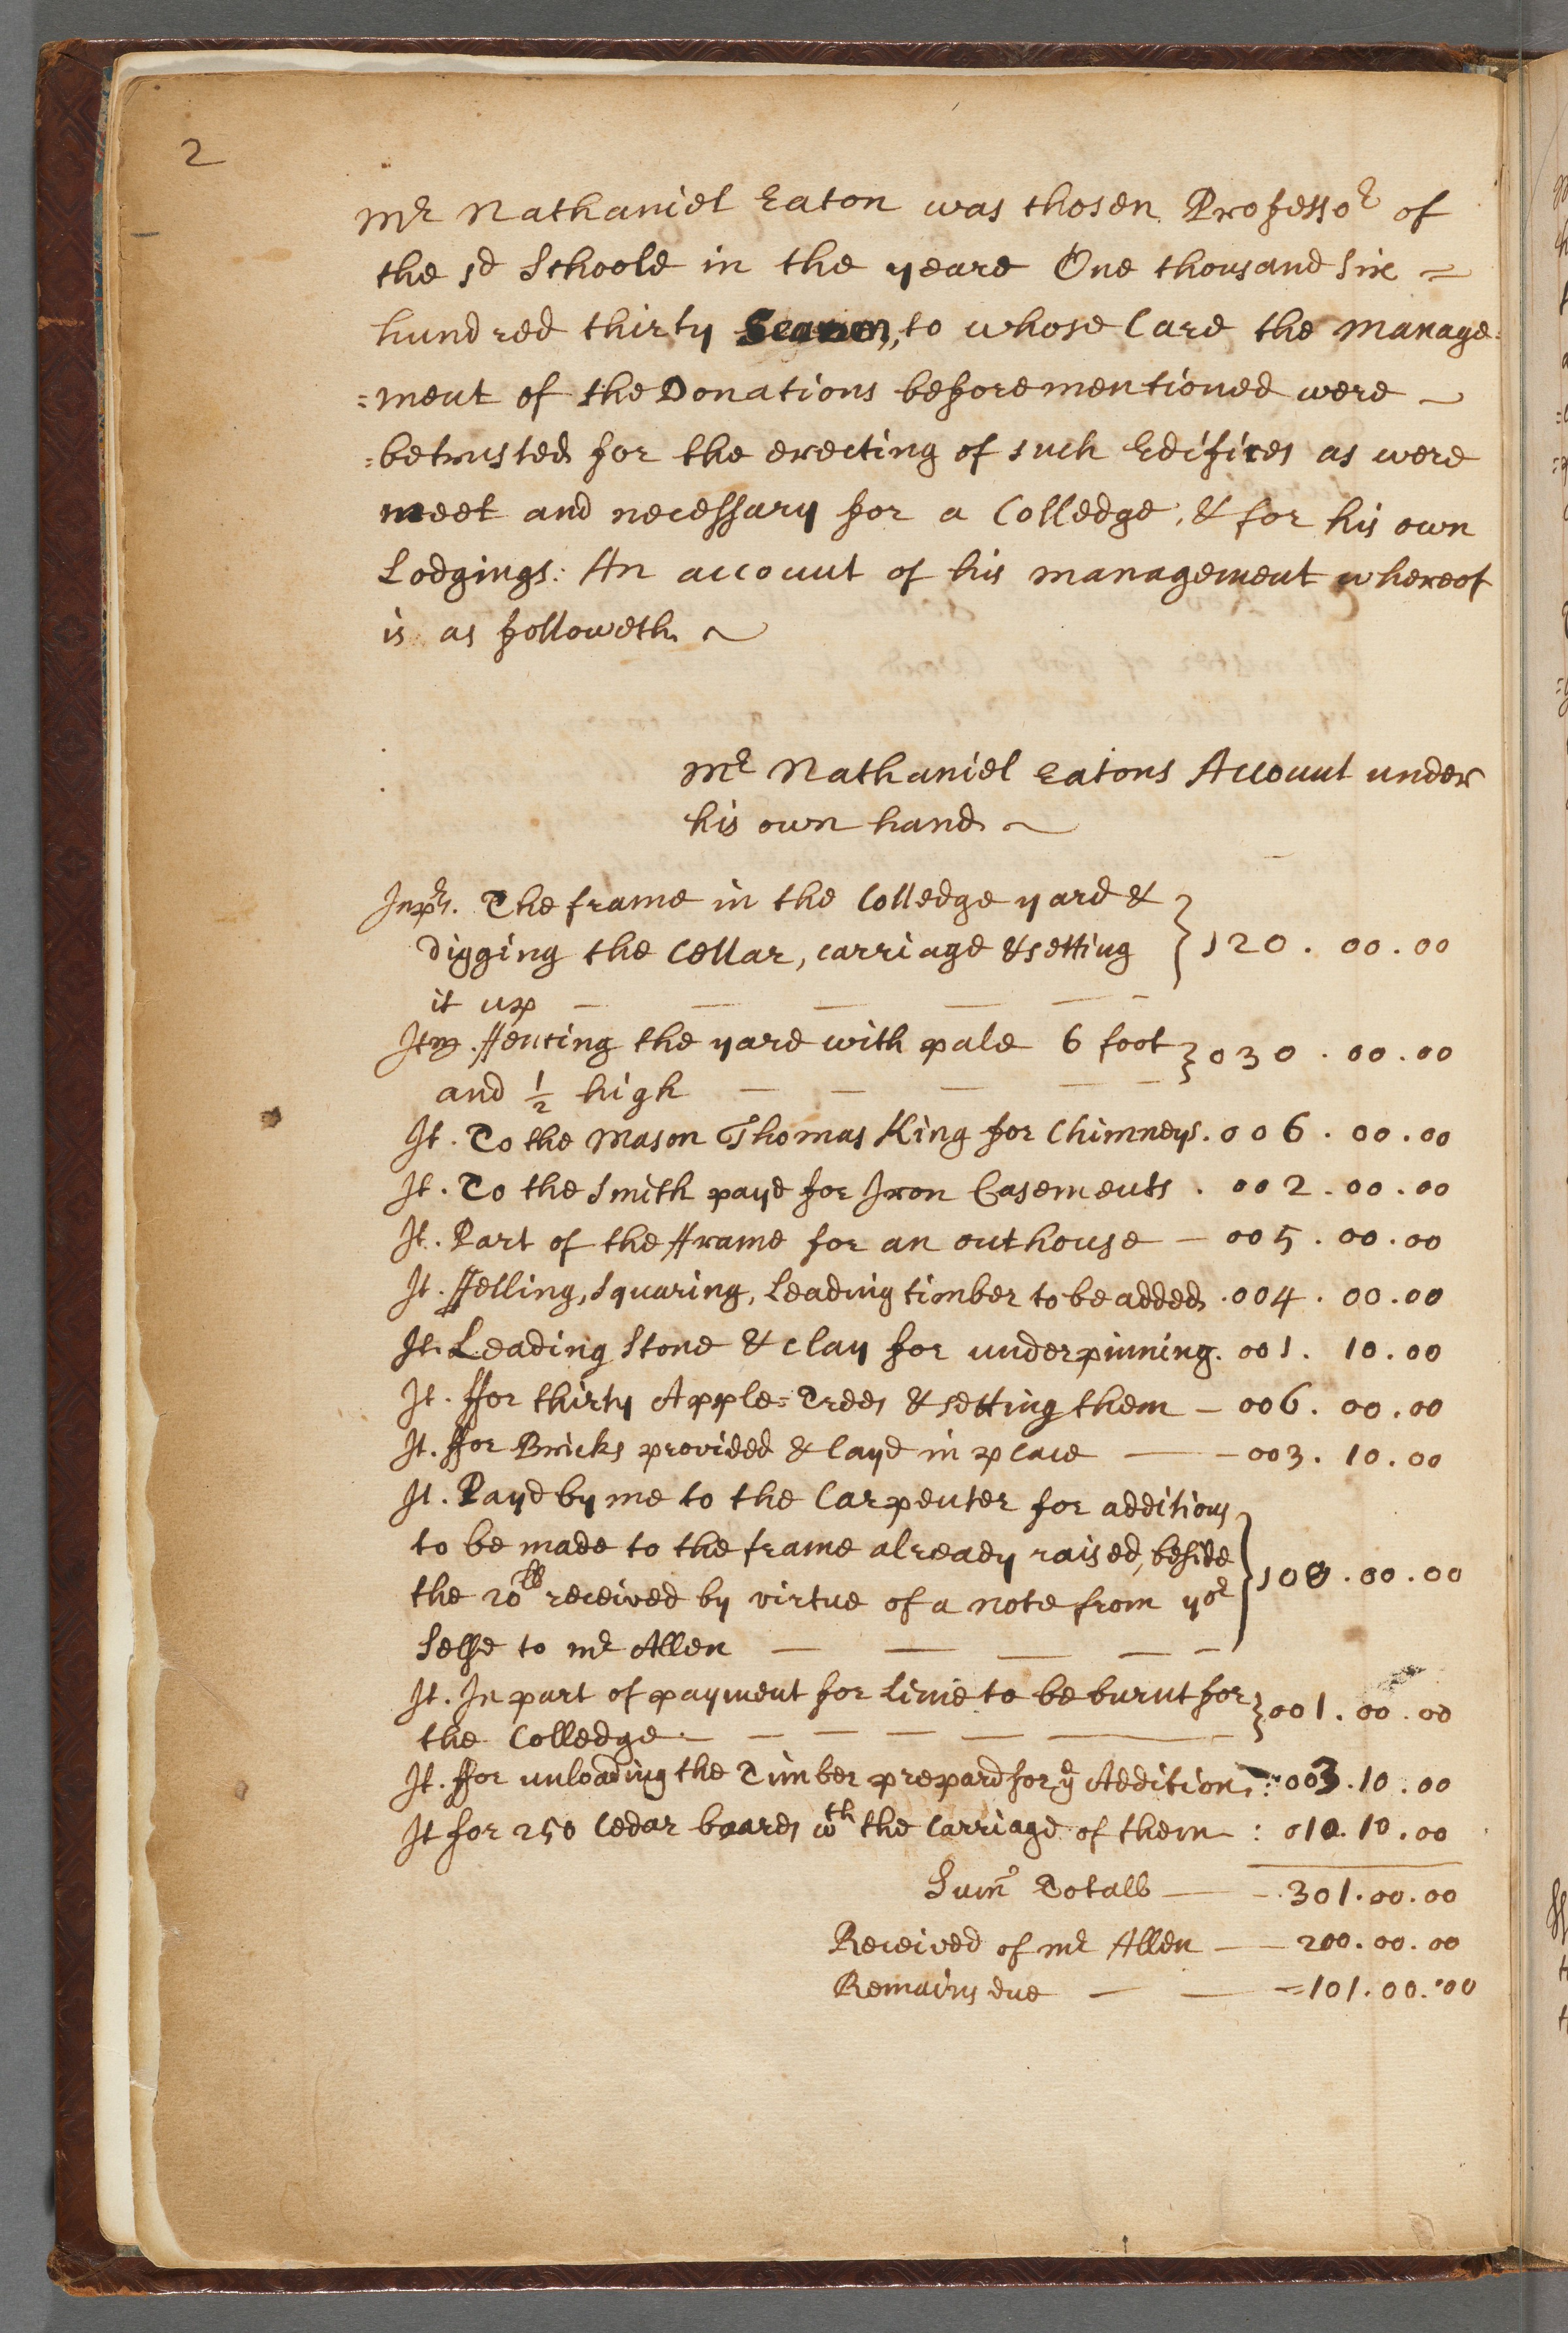 2
Mr Nathaniel Eaton was chosen Professor of
the sd Schoole in the yeare One thousand six =
hundred thirty Seaven, to whose Care the manage=
=ment of the Donations before mentioned were
=betrusted for the erecting of such Edifices as were
meet and necessary for a Colledge, & for his own
Lodgings: An account of his management whereof
is as followeth
Mr Nathaniel Eatons Account under
his own hand
Imprs. The frame in the Colledge yard &
digging the Cellar, carriage & setting } 120 . 00 . 00
it up
Itm. ffencing the yard with pale 6 foot } 030 . 00 . 00
and ½ high
It. To the Mason Thomas King for Chimneys. 006 . 00 . 00
It. To the Smith payd for Iron Casements . 002 . 00 . 00
It. Part of the fframe for an outhouse — 005 . 00 . 00
It. ffelling, squaring, Leading timber to be added . 004 . 00 . 00
It. Leading Stone & clay for underpinning. 001 . 10 . 00
It. ffor thirty Apple=Trees & setting them — 006 . 00 . 00
It. ffor Bricks provided & layd in place — 003 . 10 . 00
It. Payd by me to the Carpenter for additions
to be made to the frame already raised, beside
the 20ll received by virtue of a note from yor } 108 . 00 . 00
Selfe to mr Allen
It. In part of payment for lime to be burnt for } 001 . 00 . 00
the Colledge
It. ffor unloading the Timber prepard for ye Addition : 003 . 10 . 00
It for 250 Cedar boards wth the Carriage of them : 010 . 10 . 00
Sume Totall — 301 . 00 . 00
Received of mr Allen — 200 . 00 . 00
Remains due — =101 . 00 . 00